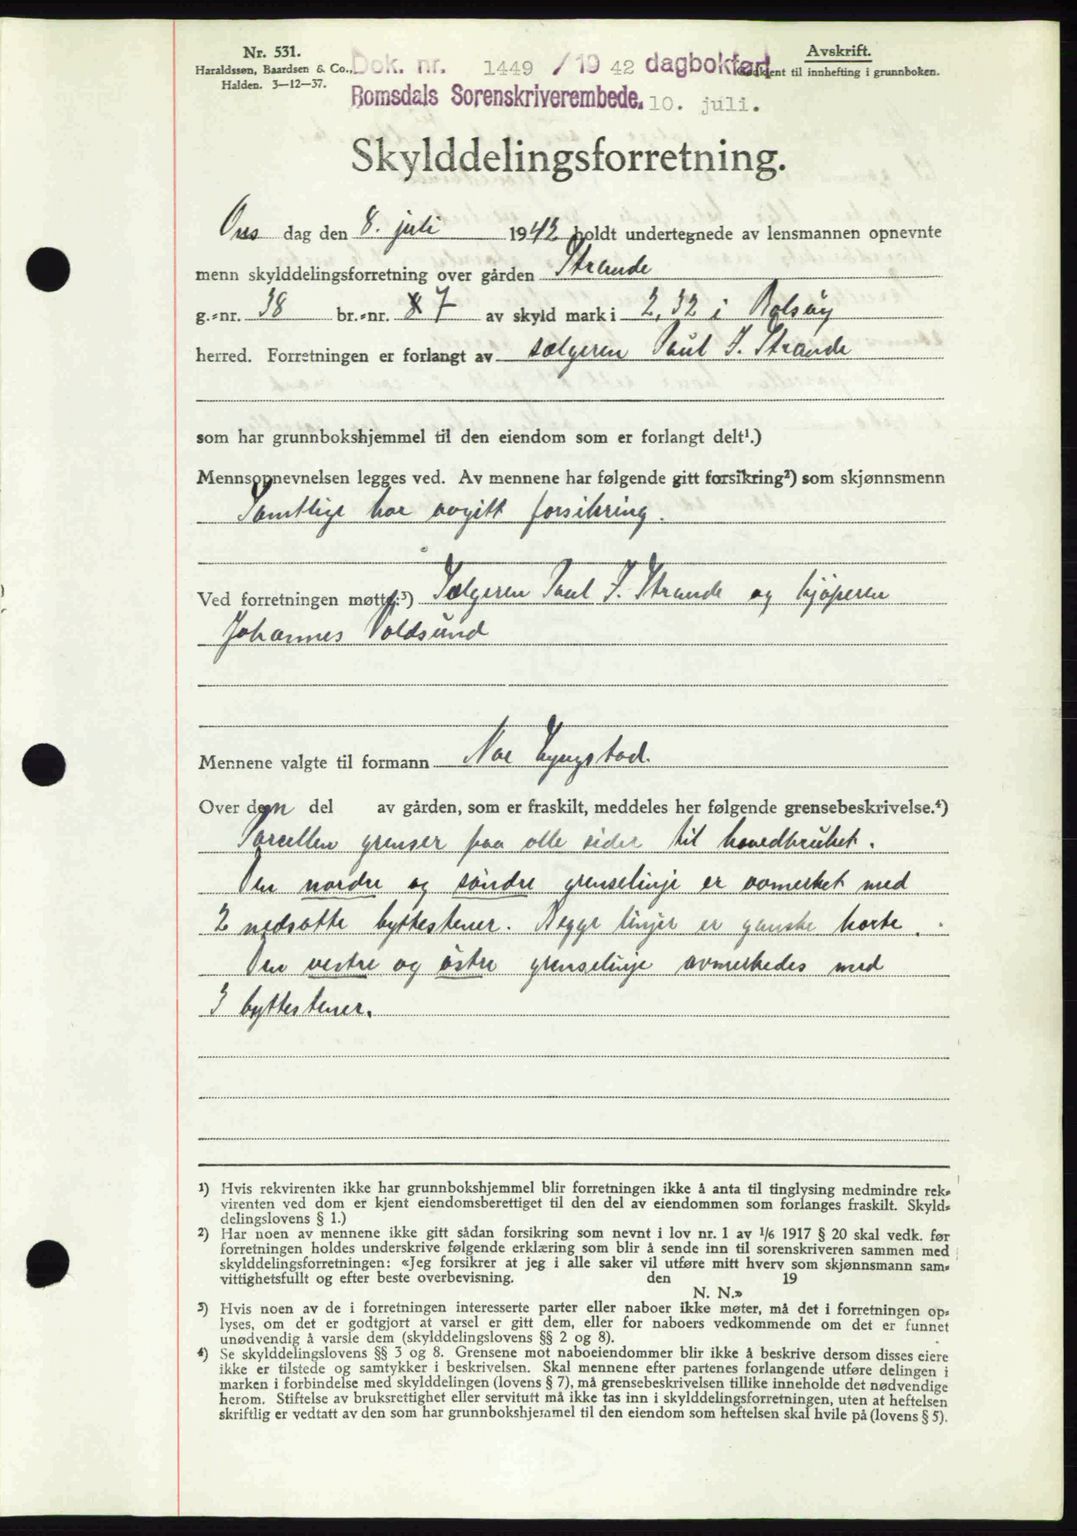 Nr. 531.
Haraldssøn, Baardsen & Co.,
Halden. 3-12-37.
Dok. nr. 1449 /19 42 dagbokført
Romsdals Sorenskriverembede. 10. juli.
Avskrift.
til innhefting i grunnboken.
Skylddelingsforretning.
Ons dag den 8. juli 1942 holdt undertegnede av lensmannen opnevnte
menn skylddelingsforretning over gården Strande
g.-nr. 38 br.-nr. 7 av skyld mark i 2,32 i Bolsöy
herred. Forretningen er forlangt av sælgeren Paul J. Strande
som har grunnbokshjemmel til den eiendom som er forlangt delt¹.)
Mennsopnevnelsen legges ved. Av mennene har følgende gitt forsikring²) som skjønnsmenn
Samtlige har avgitt forsikring.
Ved forretningen møtte:³) Sælgeren Paul J. Strande og kjöperen
Johannes Voldsund
Mennene valgte til formann Noe Lyngstad.
Over den del av gården, som er fraskilt, meddeles her følgende grensebeskrivelse.⁴)
Parcellen grenser paa alle sider til hovedbruket.
Den nordre og söndre grenselinje er avmerket med
2 nedsatte byttestener. Begge linjer er ganske korte.
Den vestre og östre grenselinje avmerkedes med
3 byttestener.
¹) Hvis rekvirenten ikke har grunnbokshjemmel blir forretningen ikke å anta til tinglysing medmindre rek-
virenten ved dom er kjent eiendomsberettiget til den del av eiendommen som forlanges fraskilt. Skyld-
delingslovens § 1.)
²) Har noen av mennene ikke gitt sådan forsikring som nevnt i lov nr. 1 av 1/6 1917 § 20 skal vedk. før
forretningen holdes underskrive følgende erklæring som blir å sende inn til sorenskriveren sammen med
skylddelingsforretningen: «Jeg forsikrer at jeg i alle saker vil utføre mitt hverv som skjønnsmann sam-
vittighetsfullt og efter beste overbevisning. den 19
N. N.»
³) Hvis noen av de i forretningen interesserte parter eller naboer ikke møter, må det i forretningen op-
lyses, om det er godtgjort at varsel er gitt dem, eller for naboers vedkommende om det er funnet
unødvendig å varsle dem (skylddelingslovens §§ 2 og 8).
⁴) Se skylddelingslovens §§ 3 og 8. Grensene mot naboeiendommer blir ikke å beskrive dersom disses eiere
ikke er tilstede og samtykker i beskrivelsen. Skal mennene efter partenes forlangende utføre delingen i
marken i forbindelse med skylddelingen (lovens § 7), må grensebeskrivelsen tillike inneholde det nødvendige
herom. Stiftelse av bruksrettighet eller servitutt må ikke tas inn i skylddelingsforretningen, uten at heftelsen
skriftlig er vedtatt av den som har grunnbokshjemmel til den eiendom som heftelsen skal hvile på (lovens § 5).